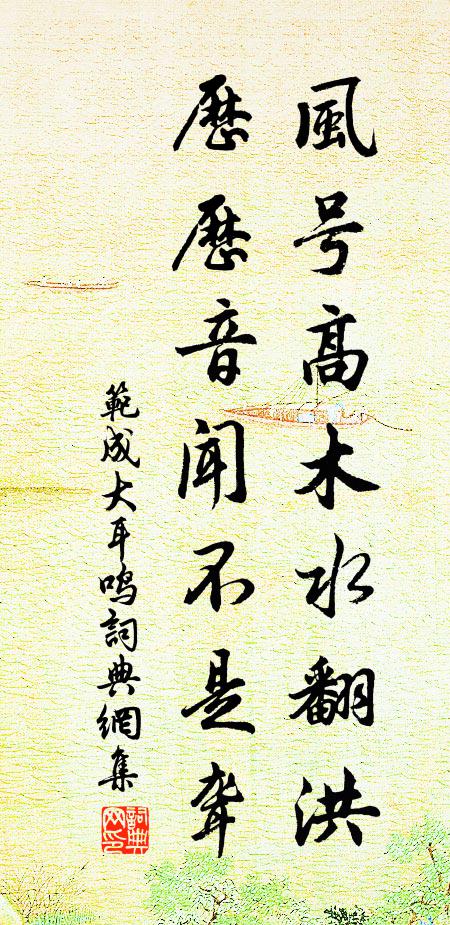 風号高木水翻洪
歷歷音聞不是聋
範成大耳鸣詞典網集
詞典网印